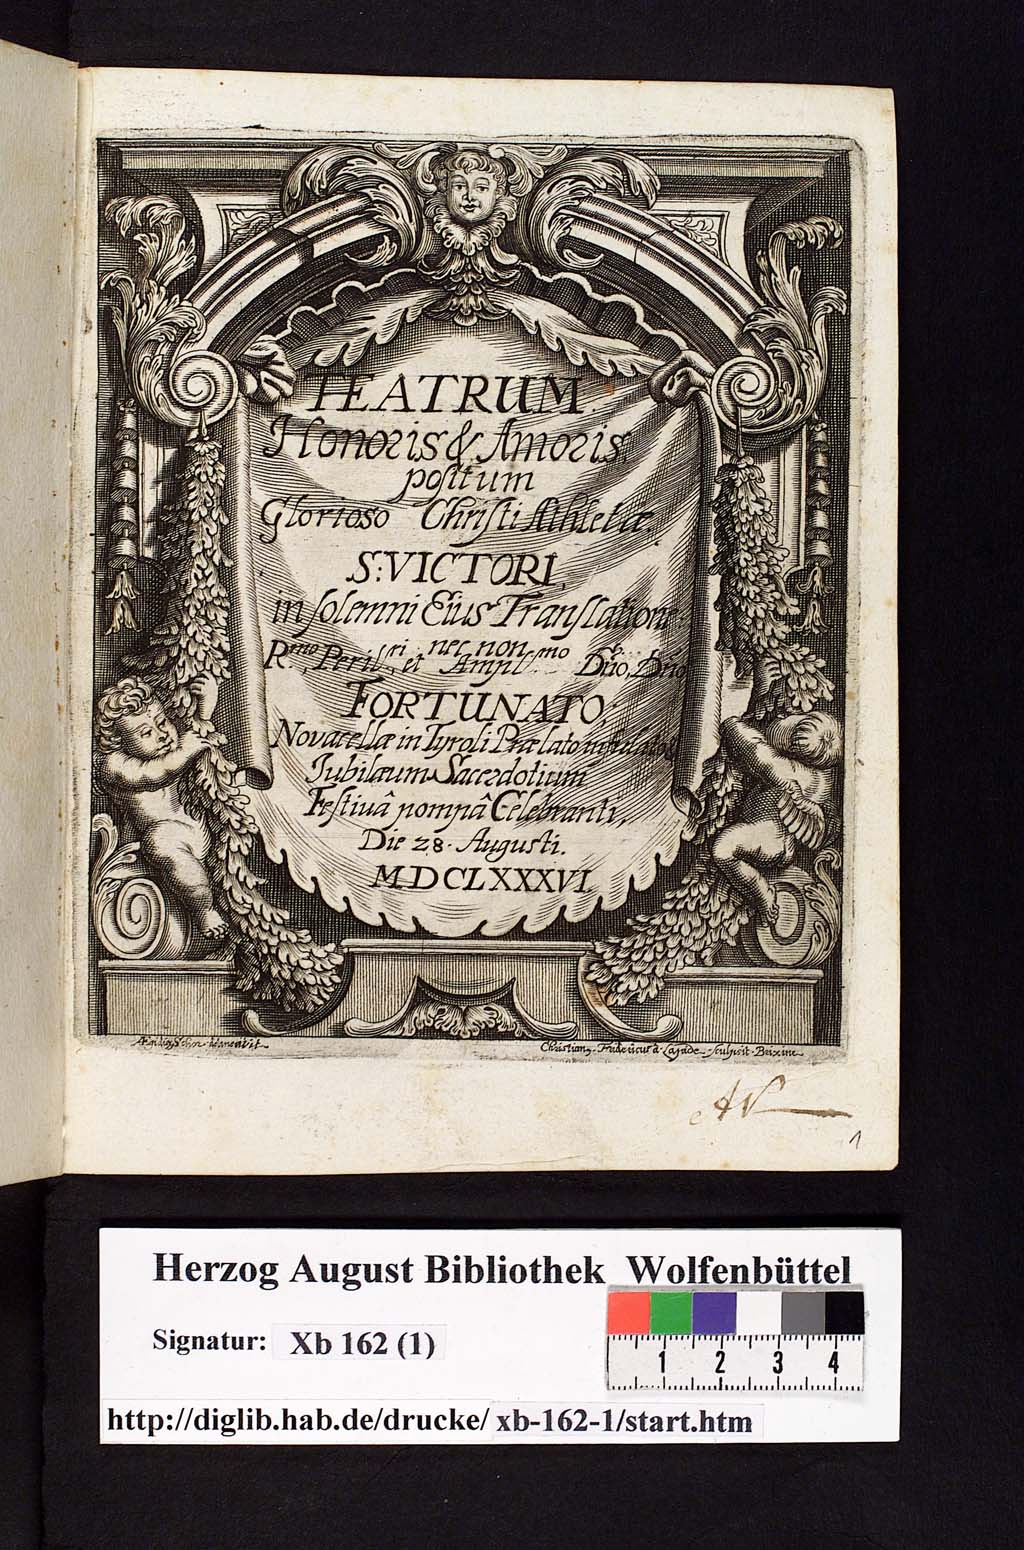 TEATRUM
Honoris & Amoris,
positum
Glorioso Christi Athletæ
S: VICTORI,
in solemni Eius Translatione:
R.mo Perill.ri nec non
et Ampl.mo Dño, Dño
FORTUNATO,
Novacellæ in Tyroli Prælato infulato
Jubilæum Sacerdotium
Festivâ pompâ Celebranti,
Die 28. Augusti.
MDCLXXXVI
Schor
Christian, Fridericus à Lajade sculpsit Brixinæ
1
Herzog August Bibliothek Wolfenbüttel
Signatur: Xb 162 (1)
1 2 3 4
http://diglib.hab.de/drucke/ xb-162-1/start.htm